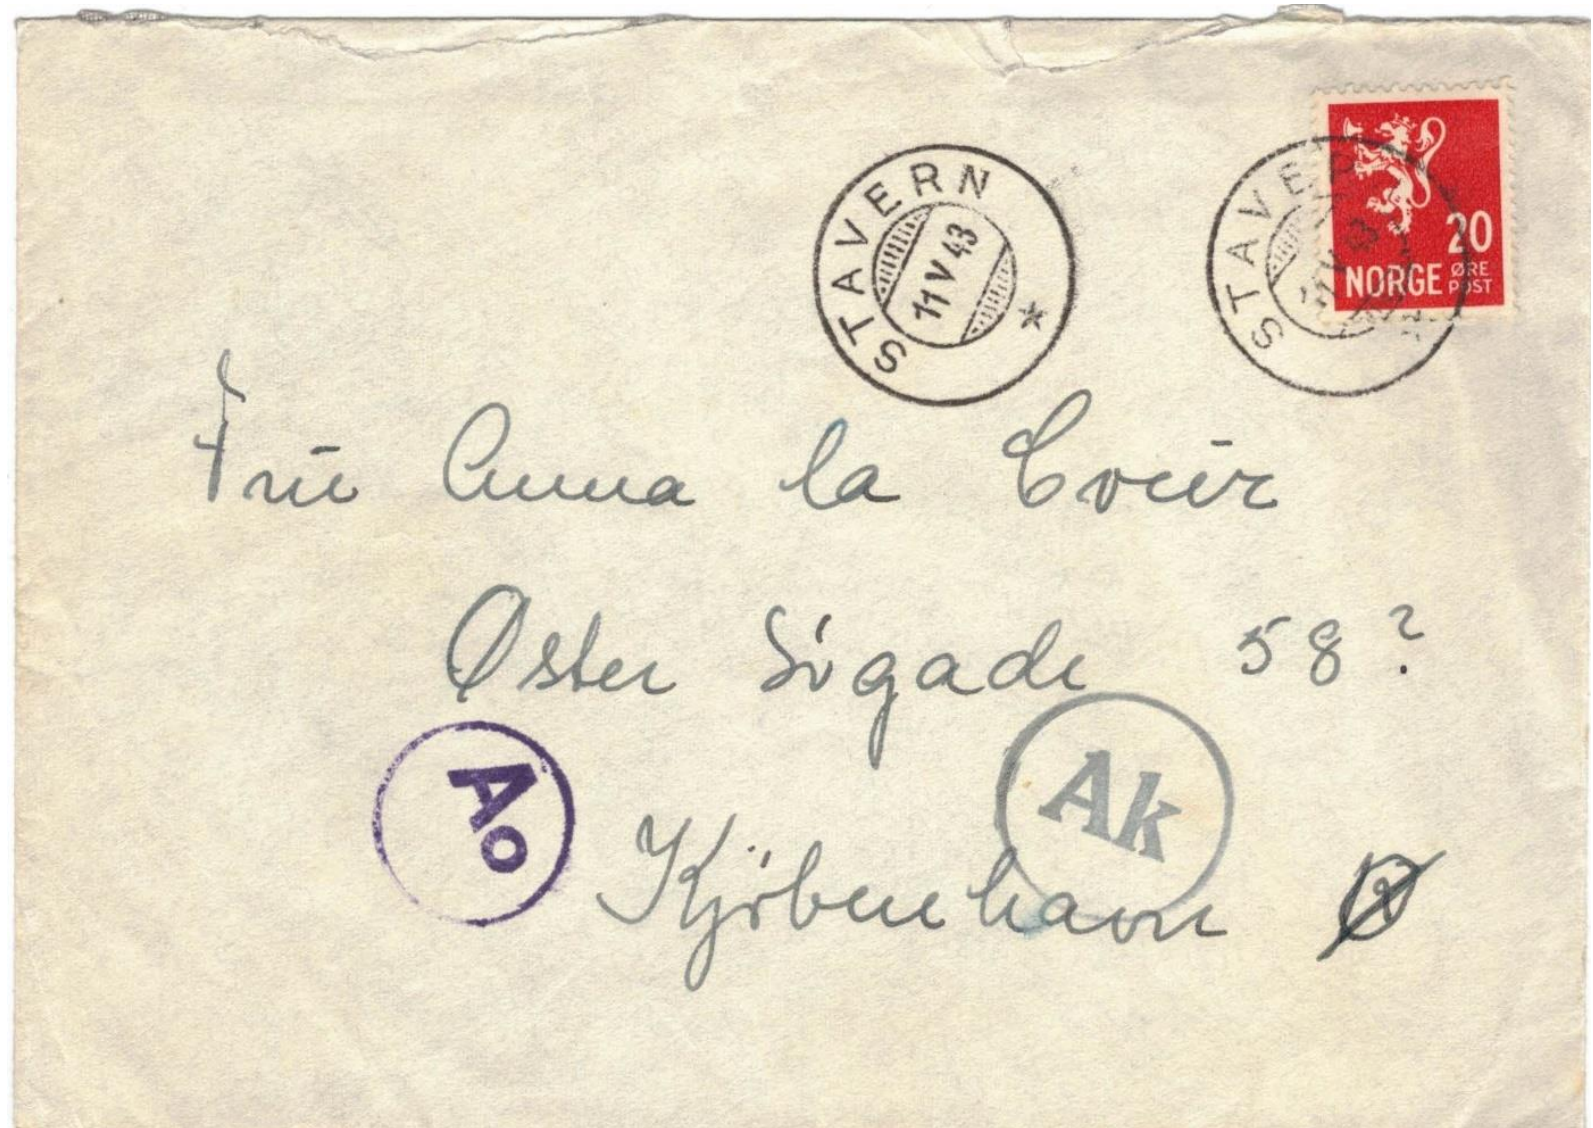 STAVERN
11 V 43
STAVER
20
NORGE ØRE POST
Frü Anna la Coür
Øster Sögade 58?
Ao
Ak
Kjöbenhavn